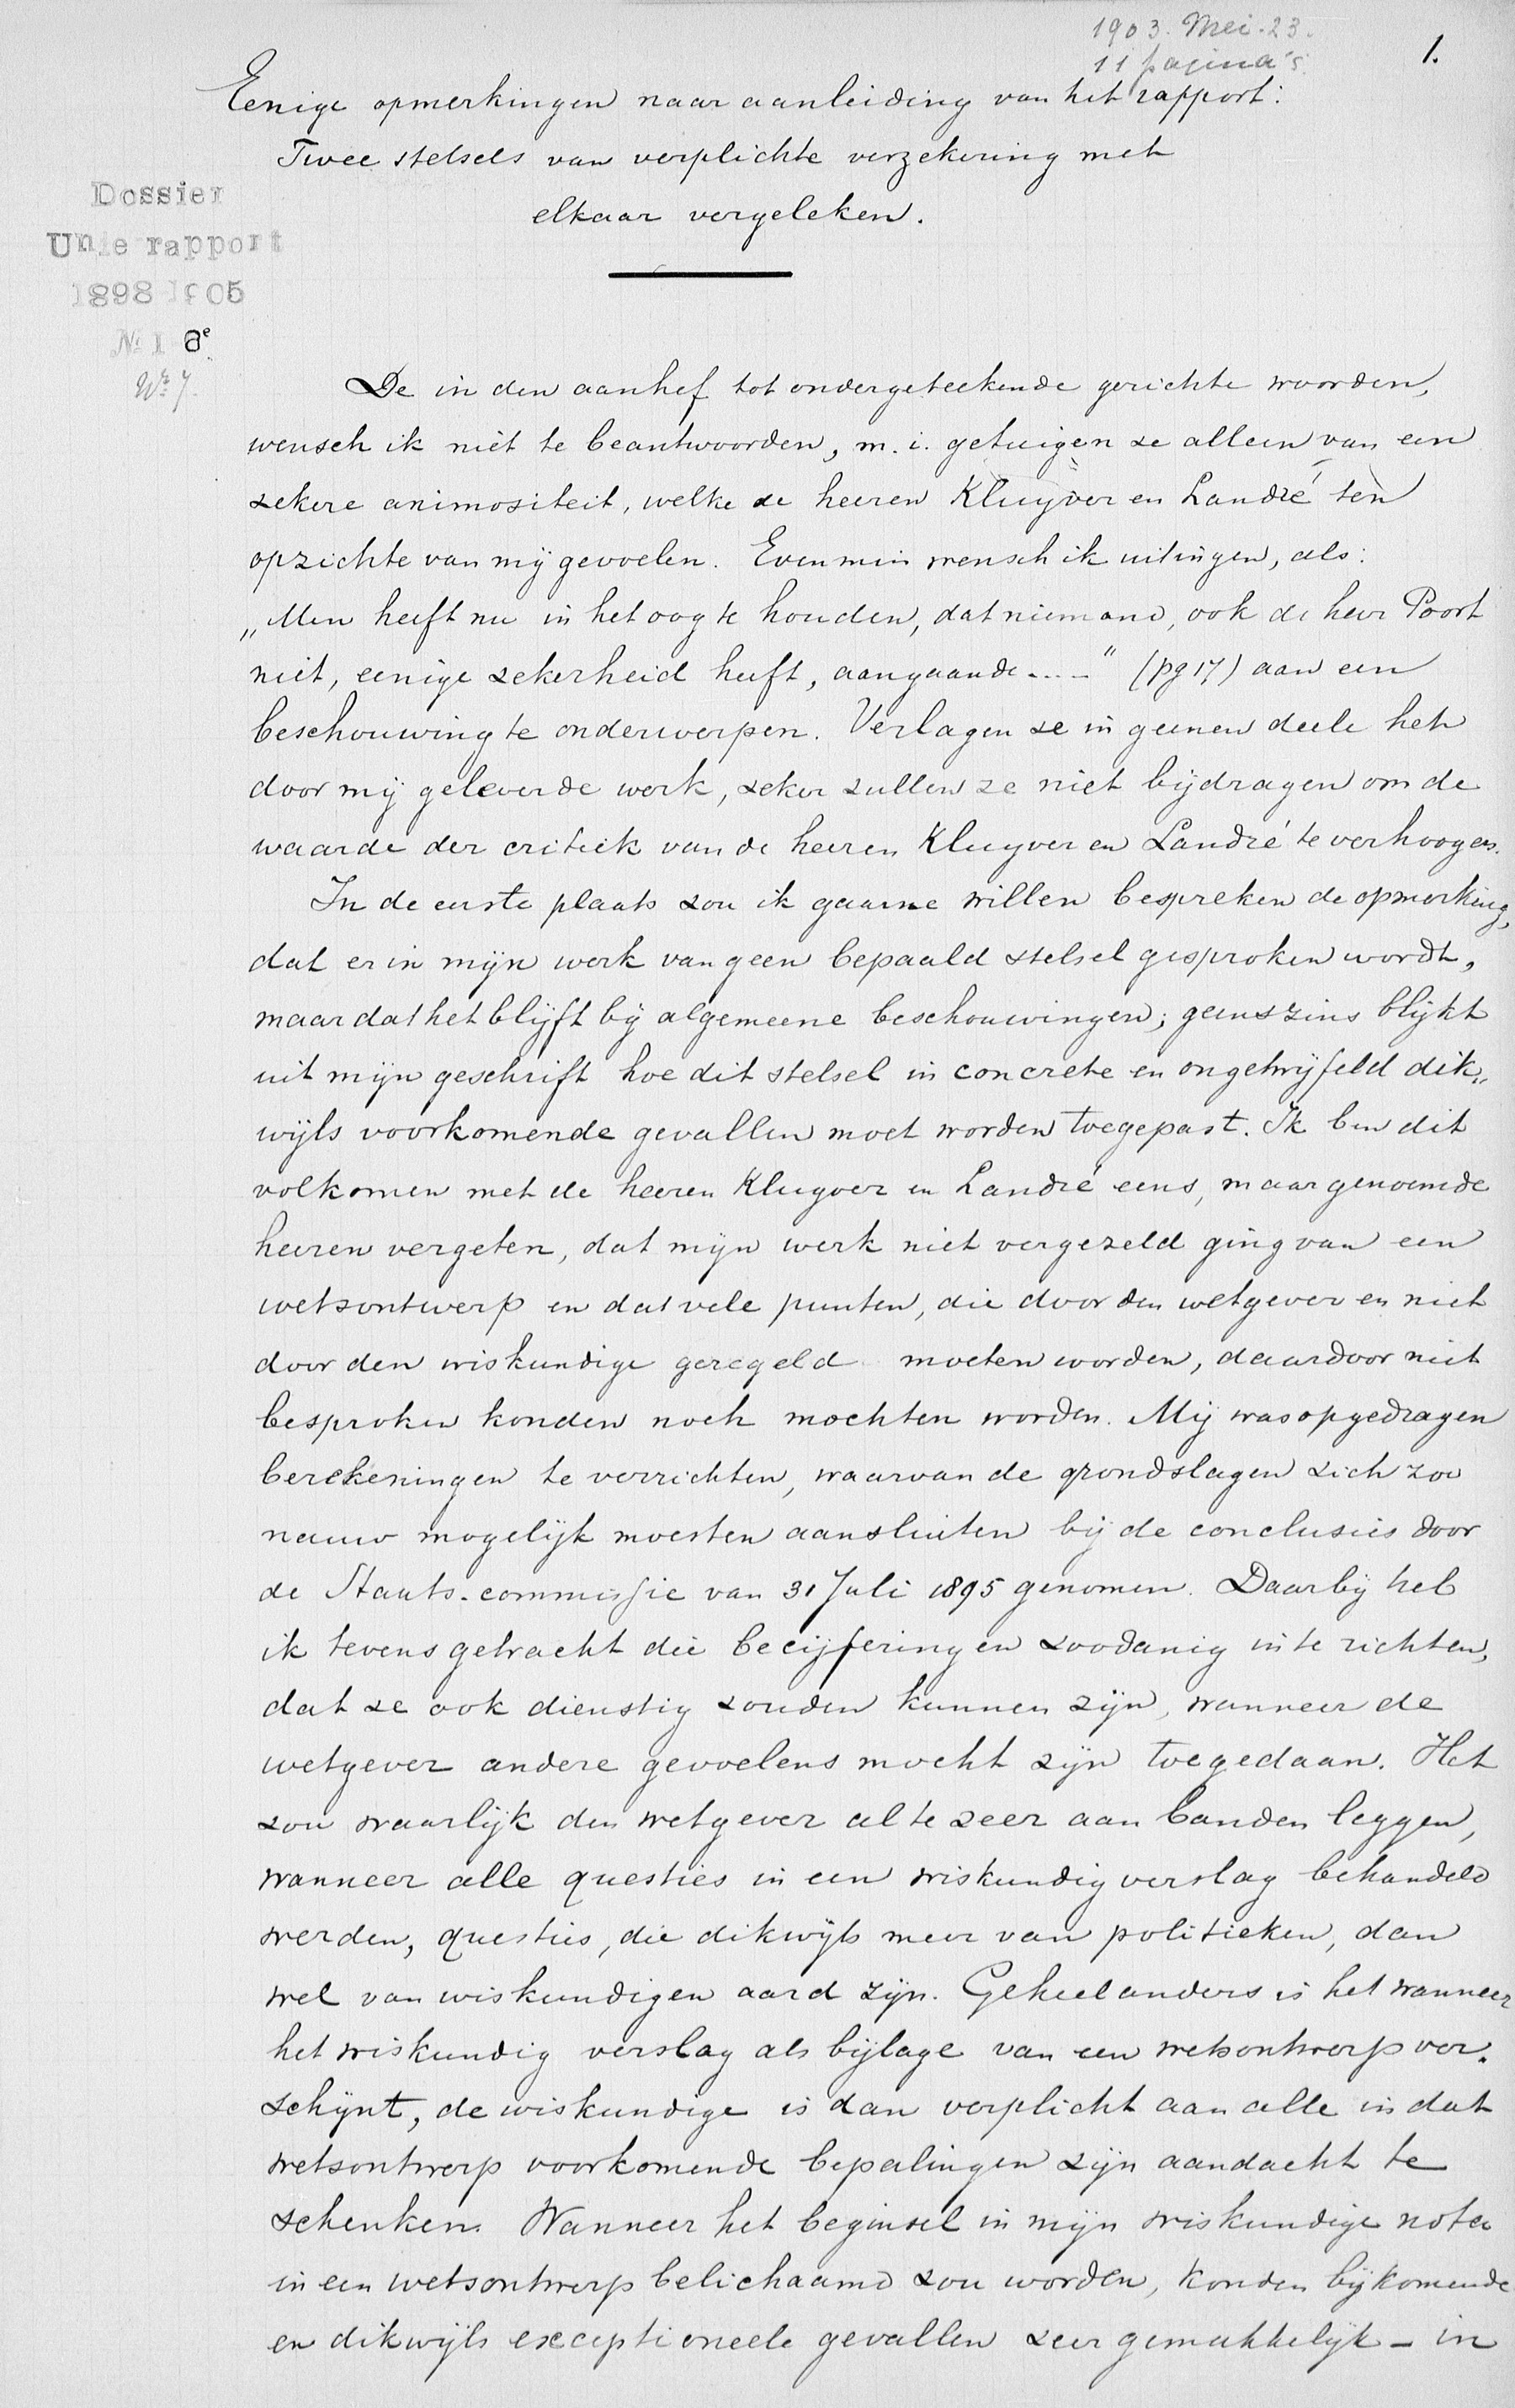 1903. Mei. 23.
11 pagina's.
1.
Eenige opmerkingen naar aanleiding van het rapport:
Twee stelsels van verplichte verzekering met
elkaar vergeleken.
Dossier
Unie rapport
1898-1905
No. 1 a
De in den aanhef tot ondergeteekende gerichte woorden,
wensch ik niet te beantwoorden, m. i. getuigen ze alleen van een
zekere animositeit, welke de heeren Kluyver en Landré ten
opzichte van mij gevoelen. Evenmin wensch ik uitingen, als:
„Men heeft nu in het oog te houden, dat niemand, ook de heer Poort
niet, eenige zekerheid heeft, aangaande...." (pg 17) aan een
beschouwing te onderwerpen. Verlagen ze in geenen deele het
door mij geleverde werk, zeker zullen ze niet bijdragen om de
waarde der critiek van de heeren Kluyver en Landré te verhoogen.
In de eerste plaats zou ik gaarne willen bespreken de opmerking,
dat er in mijn werk van geen bepaald stelsel gesproken wordt,
maar dat het blijft bij algemeene beschouwingen; geenszins blijkt
uit mijn geschrift hoe dit stelsel in concrete en ongetwijfeld dik„
wijls voorkomende gevallen moet worden toegepast. Ik ben dit
volkomen met de heeren Kluyver en Landré eens, maar genoemde
heeren vergeten, dat mijn werk niet vergezeld ging van een
wetsontwerp en dat vele punten, die door den wetgever en niet
door den wiskundige geregeld moeten worden, daardoor niet
besproken konden noch mochten worden. Mij was opgedragen
berekeningen te verrichten, waarvan de grondslagen zich zoo
nauw mogelijk moesten aansluiten bij de conclusies door
de Staats-commissie van 31 Juli 1895 genomen. Daarbij heb
ik tevens getracht die becijferingen zoodanig in te richten,
dat ze ook dienstig zouden kunnen zijn, wanneer de
wetgever andere gevoelens mocht zijn toegedaan. Het
zou waarlijk den wetgever al te zeer aan banden leggen,
wanneer alle questies in een wiskundig verslag behandeld
werden, questies, die dikwijls meer van politieken, dan
wel van wiskundigen aard zijn. Geheel anders is het wanneer
het wiskundig verslag als bijlage van een wetsontwerp ver-
schijnt, de wiskundige is dan verplicht aan alle in dat
wetsontwerp voorkomende bepalingen zijn aandacht te
schenken. Wanneer het beginsel in mijn wiskundige nota
in een wetsontwerp belichaamd zou worden, konden bijkomende
en dikwijls exceptioneele gevallen zeer gemakkelijk - in